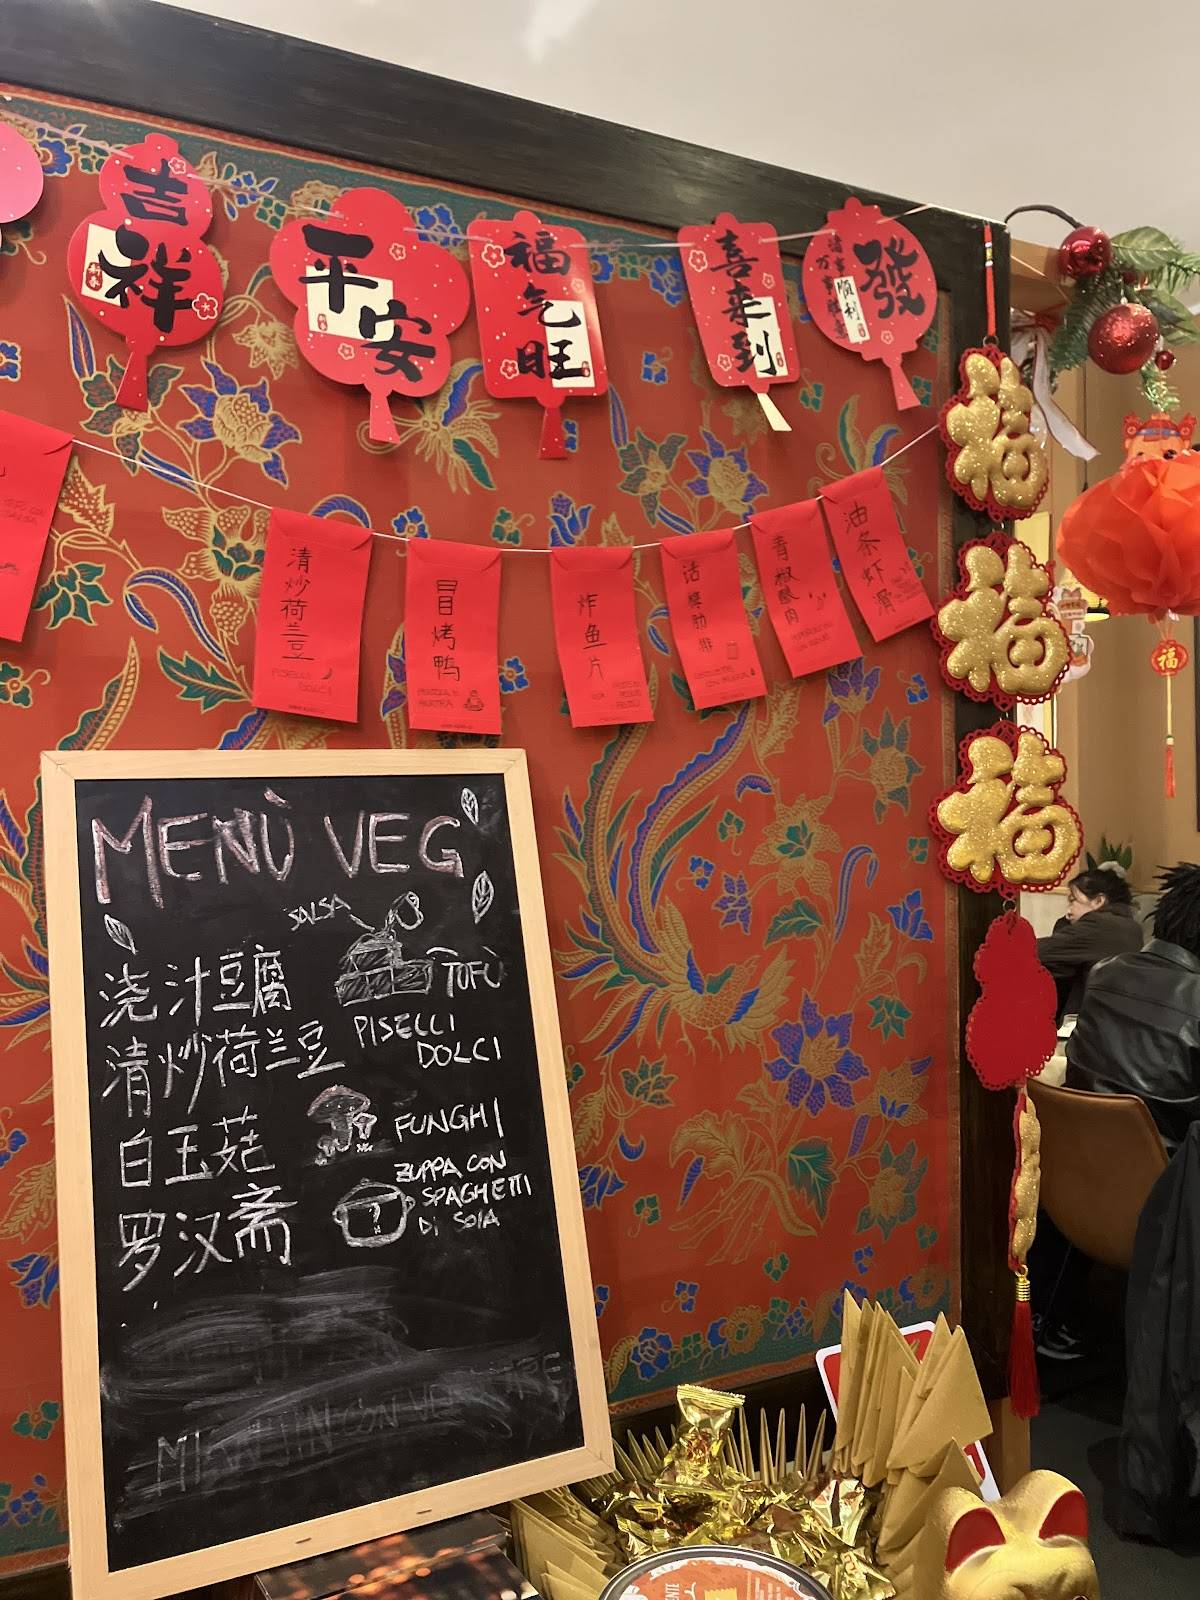 吉祥
新春
平安
福气旺
喜来到
發
诸事顺利
万事胜意
福
福
福
福
清炒荷兰豆
PISELLI DOLCI
冒烤鸭
炸鱼片
话梅肋排
青椒酸肉
油条虾滑
MENÙ VEG
SALSA
浇汁豆腐
TOFÙ
清炒荷兰豆
PISELLI
DOLCI
白玉菇
FUNGHI
罗汉斋
ZUPPA CON
SPAGHETTI
DI SOIA